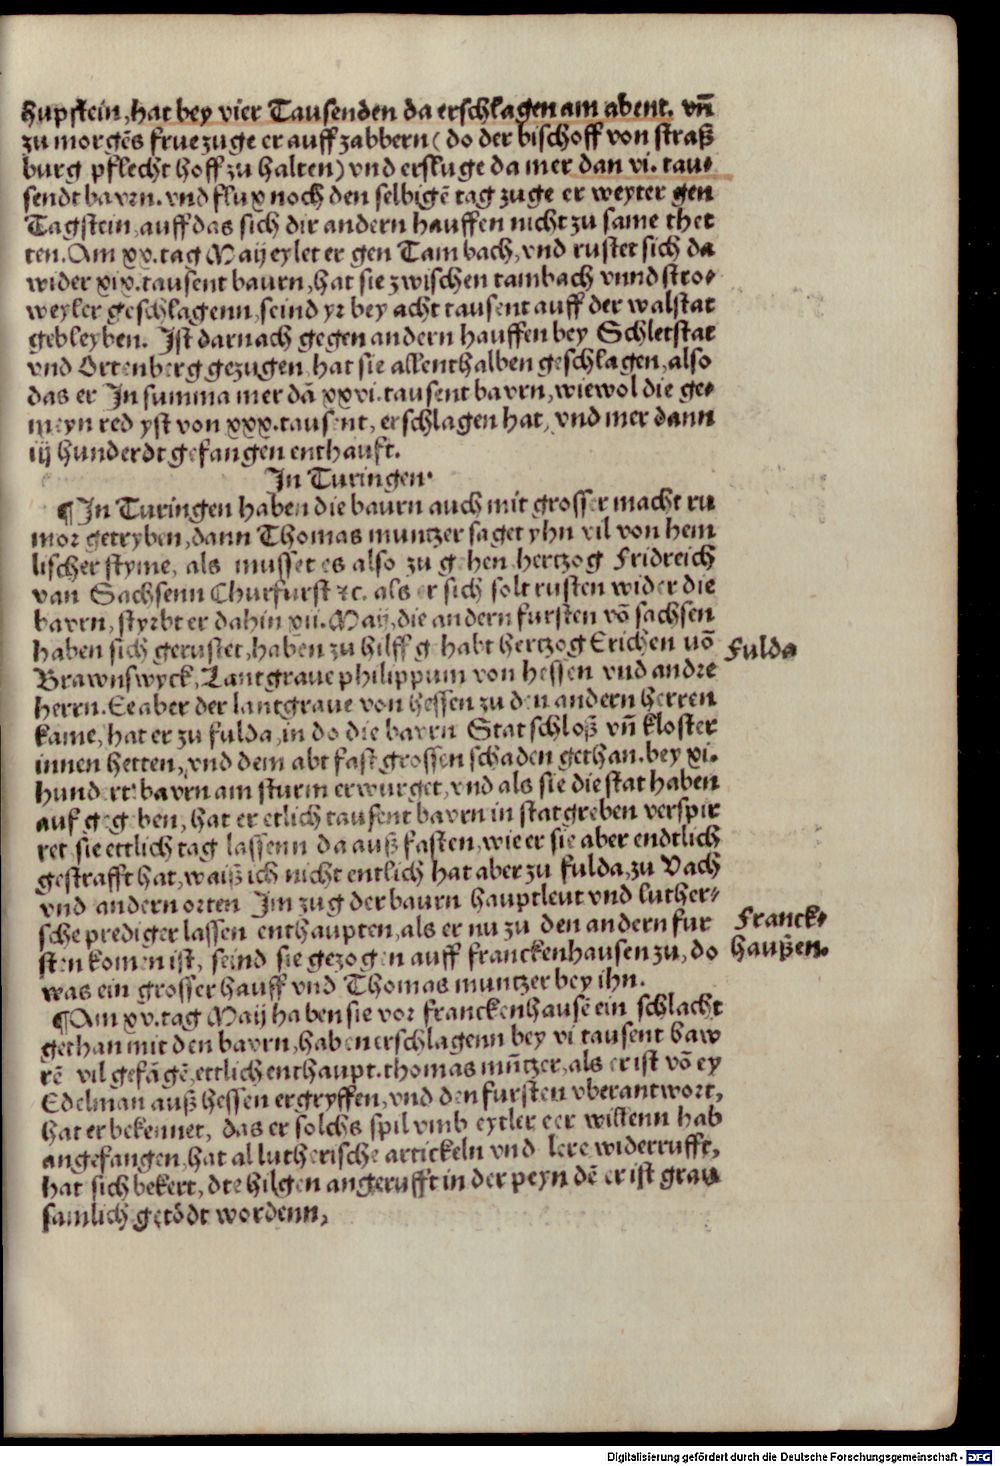 Hupstein, hat bey vier Tausenden da erschlagen am abent. vn̄
zu morgēs frue zuge er auff zabbern ( do der bischoff von straß
burg pflecht hoff zu halten) vnd ersluge da mer dan vi. tau⸗
sendt bavrn. vnd flux noch den selbigē tag zuge er weyter gen
Tagstein, auff das sich dir andern hauffen nicht zu same thet
ten. Am xx. tag Maij eylet er gen Tambach, vnd rustet sich da
wider xix. tausent baurn, hat sie zwischen tambach vnnd stro⸗
weyler geschlagenn, seind yr bey acht tausent auff der walstat
gebleyben. Ist darnach gegen andern hauffen bey Schletstat
vnd Ortenberg gezugen, hat sie allenthalben geschlagen, also
das er In summa mer dā xxvi. tausent bavrn, wiewol die ge⸗
meyn red yst von xxx. tausent, erschlagen hat, vnd mer dann
iij hunderdt gefangen enthauft.
In Turingen.
¶ In Turingen haben die baurn auch mit grosser macht ru
mor getryben, dann Thomas muntzer saget yhn vil von hem
lischer styme, als musset es also zu gehen hertzog Fridreich
van Sachsenn Churfurst ⁊c. als er sich solt rusten wider die
bavrn, styrbt er dahin xii. Maij, die andern fursten vō sachsen
haben sich gerustet, haben zu hilff g habt hertzog Erichen uō
Brawnswyck, Lantgraue philippum von hessen vnd andre
herrn. Ee aber der lantgraue von hessen zu den andern herren
kame, hat er zu fulda, in do die bavrn Stat schloß vn̄ kloster
innen hetten, vnd dem abt fast grossen schaden gethan. bey xi.
hundert bavrn am sturm erwurget, vnd als sie die stat haben
auf gegeben, hat er etlich tausent bavrn in statgreben verspir
ret sie ettlich tag lassenn da auß fasten, wie er sie aber endtlich
gestrafft hat, waiß ich nicht entlich hat aber zu fulda, zu Vach
vnd andern orten Im zug der baurn hauptleut vnd luther⸗
sche prediger lassen enthaupten, als er nu zu den andern fur
sten komen ist, seind sie gezogen auff franckenhausen zu, do
was ein grosser hauff vnd Thomas muntzer bey ihn.
¶ Am xv. tag Maij haben sie vor franckenhausē ein schlacht
gethan mit den bavrn, haben erschlagenn bey vi tausent baw
rē vil gefāgē, ettlich enthaupt. thomas mūtzer, als er ist vō ey
Edelman auß hessen ergryffen, vnd den fursten vberantwort,
hat er bekennet, das er solchs spil vmb eytler eer willenn hab
angefangen, hat al lutherische artickeln vnd lere widerrufft,
hat sich bekert, dte hilgen angerufft in der peyn dē er ist grau
samlich getödt wordenn,
Fulda
Franck⸗
haußen.
Digitalisierung gefördert durch die Deutsche Forschungsgemeinschaft - DFG